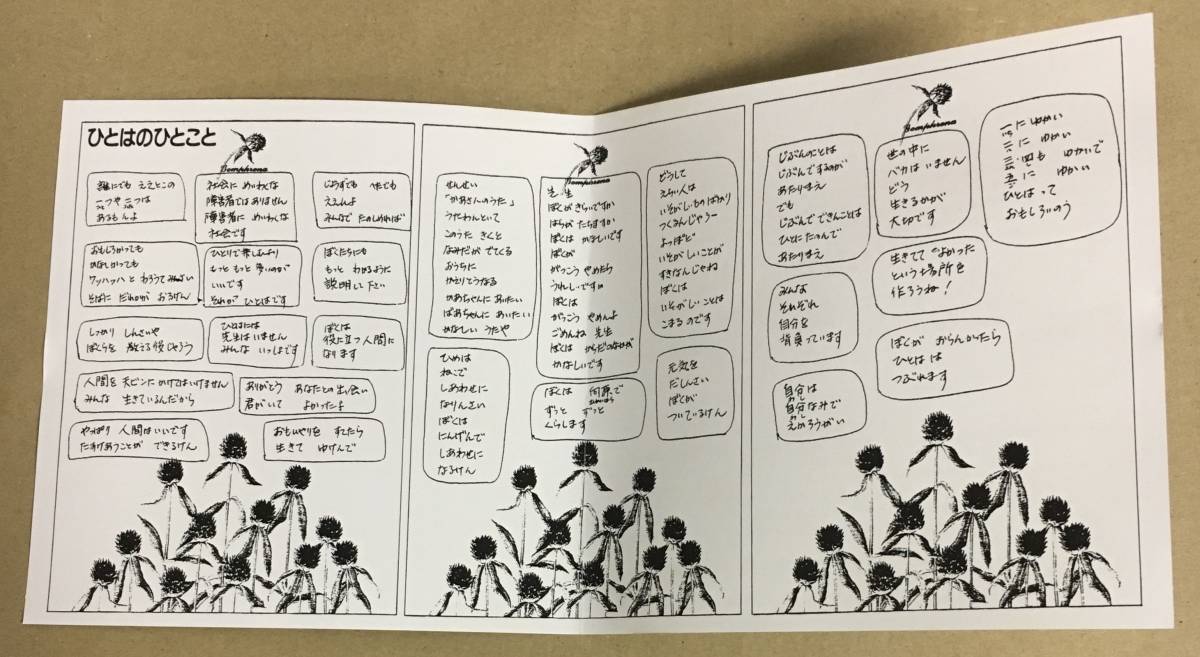 ひとはのひとこと
Gomphrena
誰にでも ええとこの
一つや二つは
あるもんよ
社会に めいわくな
障害者ではありません
障害者に めいわくな
社会です
じょうずでも へたでも
ええんよ
みんなで たのしめれば
おもしろかっても
かなしかっても
ワッハッハと わろうてみんさい
そばに だれかが おるけん
ひとりで楽しむより
もっと もっと 多いのが
いいです
それが ひとはです
ぼくたちにも
もっと わかるように
説明して下さい
しっかり しんさいや
ぼくらを 教える役じゃろう
ひとはには
先生はいません
みんな いっしょです
ぼくは
役に立つ人間に
なります
人間を 天ビンに かけてはいけません
みんな 生きているんだから
ありがとう あなたとの出会い
君がいて よかったよ
やっぱり 人間はいいです
たすけあうことが できるけん
おもいやりを すてたら
生きて ゆけんで
Gomphrena
せんせい
「かあさんのうた」
うたわんといて
このうた きくと
なみだが でてくる
おうちに
かえりとうなる
かあちゃんに あいたい
ばあちゃんに あいたい
かなしい うたや
先生
ぼくがきらいですか
はらが たちますか
ぼくは かなしいです
ぼくが
がっこう やめたら
うれしいですか
ぼくは
がっこう やめんよ
ごめんね 先生
ぼくは からだのなかが
かなしいです
どうして
えらい人は
いそがしいものばかり
つくるんじゃろー
よっぽど
いそがしいことが
すきなんじゃね
ぼくは
いそがしいことは
こまるのです
ひめは
ねこで
しあわせに
なりんさい
ぼくは
にんげんで
しあわせに
なるけん
ぼくは
ずっと ずっと
くらします
元気を
だしんさい
ぼくが
ついているけん
Gomphrena
じぶんのことは
じぶんでするのが
あたりまえ
でも
じぶんで できんことは
ひとに たのんで
あたりまえ
世の中に
バカは いません
どう
生きるかが
大切です
一に ゆかい
二に ゆかい
三・四も ゆかいで
五に ゆかい
ひとはって
おもしろいのう
みんな
それぞれ
自分を
背負っています
生きてて “よかった
という場所を
作ろうね!
ぼくが おらんかったら
ひとは は
つぶれます
自分は
自分なみで
えかろうがい